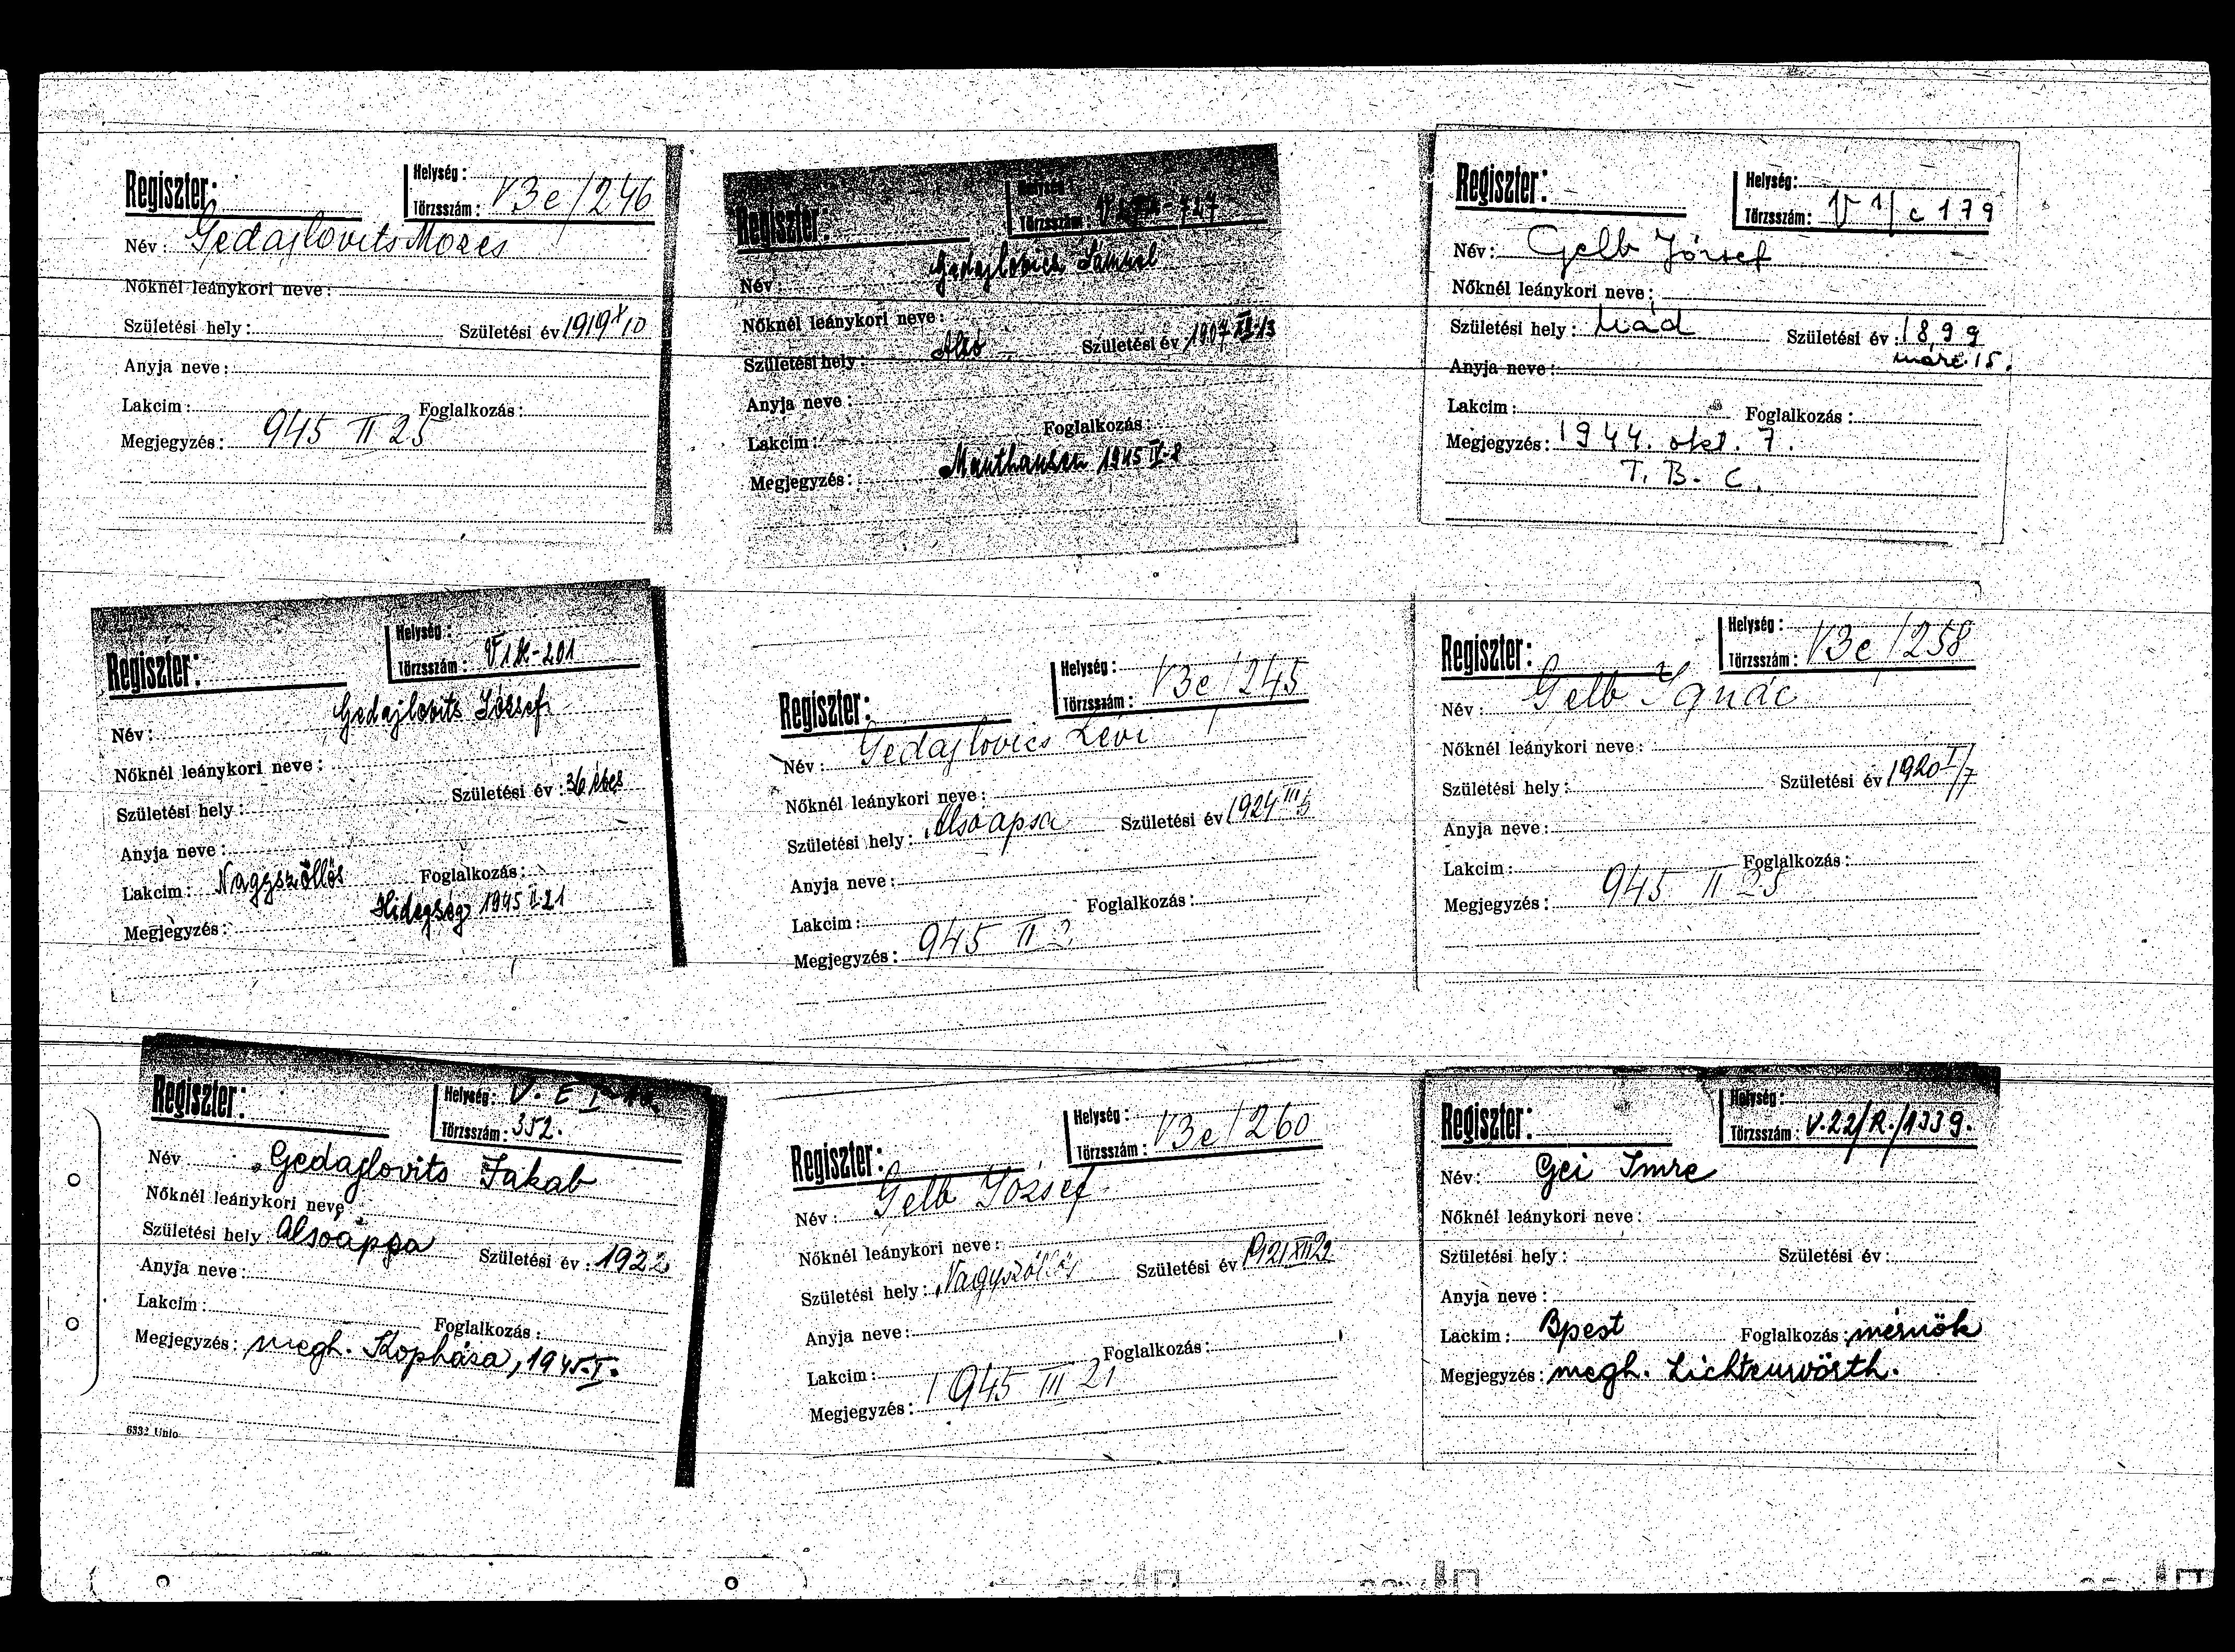 Regiszter:
Helység:
Törzsszám: V3e/246
Név: Gedajlovits Mozes
Nőknél leánykori neve:
Születési hely: Születési év 1919 X 10
Anyja neve:
Lakcim: Foglalkozás:
Megjegyzés: 945 II 25
Regiszter:
Helység:
Törzsszám:
Név Gedajlovics Sámuel
Nőknél leánykori neve:
Születési hely: Születési év 1907
Anyja neve:
Lakcim: Foglalkozás:
Megjegyzés: Mauthausen 1945 IV-8
Regiszter:
Helység:
Törzsszám: V 1/c 179
Név: Gelb József
Nőknél leánykori neve:
Születési hely: Mád Születési év: 1899
márc. 15.
Anyja neve:
Lakcim: Foglalkozás:
Megjegyzés: 1944. okt. 7.
T. B. C.
Regiszter:
Helység:
Törzsszám:
Név: Gedajlovits József
Nőknél leánykori neve:
Születési hely: Születési év: 36 éves
Anyja neve:
Lakcim: Nagyszöllös Foglalkozás:
Megjegyzés: Hidegség 1945 II-21
Regiszter:
Helység:
Törzsszám: V3e/245
Név: Gedajlovics Lévi
Nőknél leánykori neve:
Születési hely: Alsoapsa Születési év 1924 III
Anyja neve:
Lakcim: Foglalkozás:
Megjegyzés: 945 II 2
Regiszter:
Helység:
Törzsszám: V3e/258
Név: Gelb Ignác
Nőknél leánykori neve:
Születési hely: Születési év 1920 I/7
Anyja neve:
Lakcim: Foglalkozás:
Megjegyzés: 945 II 25
Regiszter:
Helység: V.
Törzsszám: 352.
Név Gedajlovits Jakab
Nőknél leánykori neve
Születési hely Alsóapsa Születési év: 1922
Anyja neve:
Lakcim: Foglalkozás:
Megjegyzés: megh. Kópháza, 1945.I.
6332 Unio
Regiszter:
Helység:
Törzsszám: V3e/260
Név: Gelb József
Nőknél leánykori neve:
Születési hely: Nagyszöllös Születési év 1921 XII 22
Anyja neve:
Lakcim: Foglalkozás:
Megjegyzés: 1945 III 21
Regiszter:
Helység:
Törzsszám: V.22/R./1339.
Név: Gei Imre
Nőknél leánykori neve:
Születési hely: Születési év:
Anyja neve:
Lackim: Bpest Foglalkozás: mérnök
Megjegyzés: megh. Lichtenwörth.